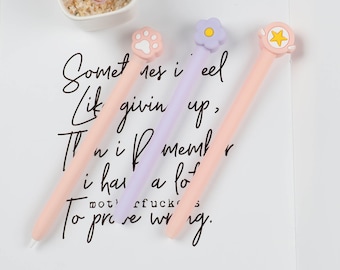 Sometimes i feel
Like giving up,
Then i Remember
i have a lot
motherfuckers
To prove wrong.